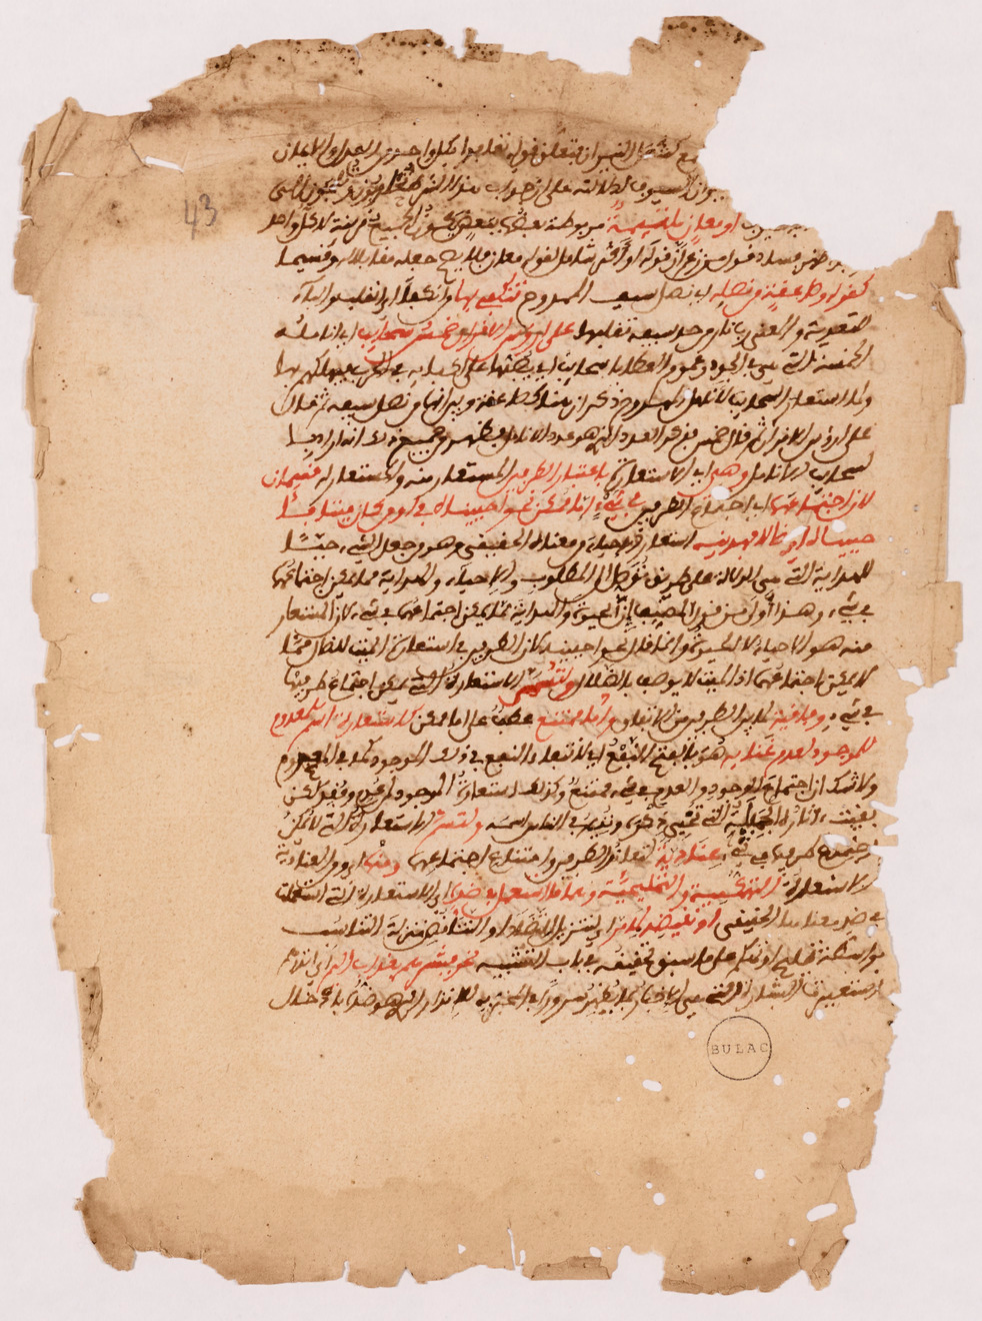 كشعل النيران فتعلق قوله تعافوا بكل واحد من العدل والايمان
السيوف لدلالته على ان جواب هذا الشرط تحاربون
او معان ملتئمة مربوطة بعضها ببعض يكون الجميع قرينة لا كل واحد
ظهر فساد قول من زعم ان قوله او اكثر شامل لقوله معان فلا يصح جعله مقابلا له وقسيما
كقوله وصاعقة من نصله اي نصل سيف الممدوح تنكفي بها من انكفا اي انقلب والباء
للتعدية والمعنى رب نار من حد سيفه تقلبها على ارؤس الاقران خمس سحائب اي انامله
الخمسة التي هي في الجود وعموم العطايا سحائب اي يصبها على اكفايه في الحرب فيهلكهم بها
ولما استعار السحائب لانامل الممدوح ذكر ان هناك صاعقة وبين انها من نصل سيفه ثم قال
على ارؤس الاقران ثم قال خمس فذكر العدد الذي هو عدد الانامل فظهر من جميع ذلك انه اراد با
لسحائب الانامل وهي اي الاستعارة باعتبار الطرفين المستعار منه والمستعار له قسمان
لان اجتماعهما اي اجتماع الطرفين في شيء اما ممكن نحو احييناه في اومن كان ميتا فا
حييناه اي ضالا فهديناه استعار الاحياء من معناه الحقيقي وهو جعل الشيء حيا
للهداية التي هي الدلالة على طريق توصل الى المطلوب والاحياء والهداية مما يمكن اجتماعهما
في شيء وهذا اولى من قول المصنف ان الحيوة والهداية مما يمكن اجتماعهما في شيء لان المستعار
منه هو الاحياء لا الحيوة وانما قال نحو احييناه لان الطرفين في استعارة الميت للضال مما
لا يمكن اجتماعهما اذ الميت لا يوصف بالضلال ولتسم الاستعارة التي يمكن اجتماع طرفيها
في شيء وفاقية لما بين الطرفين من الاتفاق واما ممتنع عطف على اما ممكن كاستعارة اسم المعدوم
للموجود لعدم غنائه هو بالفتح النفع اي لانتفاء النفع في ذلك الموجود كما في المعدوم
ولا شك ان اجتماع الوجود والعدم في شيء ممتنع وكذلك استعارة الموجود لمن عدم وفقد لكن
بقيت اثاره الجميلة التي تحيي ذكره وتديم في الناس اسمه ولتسم الاستعارة التي لا يمكن
اجتماع طرفيها في شيء عنادية لتعاند الطرفين وامتناع اجتماعهما ومنها اي ومن العنادية
الاستعارة التهكمية والتمليحية وهما ما استعمل في ضده اي الاستعارة التي استعملت
في ضد معناها الحقيقي او نقيضه لما مر اي لتنزيل التضاد او التناقض منزلة التناسب
بواسطة تمليح او تهكم على ما سبق تحقيقه في باب التشبيه نحو فبشرهم بعذاب اليم اي انذرهم
استعيرت البشارة التي هي الاخبار بما يظهر سرورا في المخبر به للانذار الذي هو ضده بادخال
43
BULAC